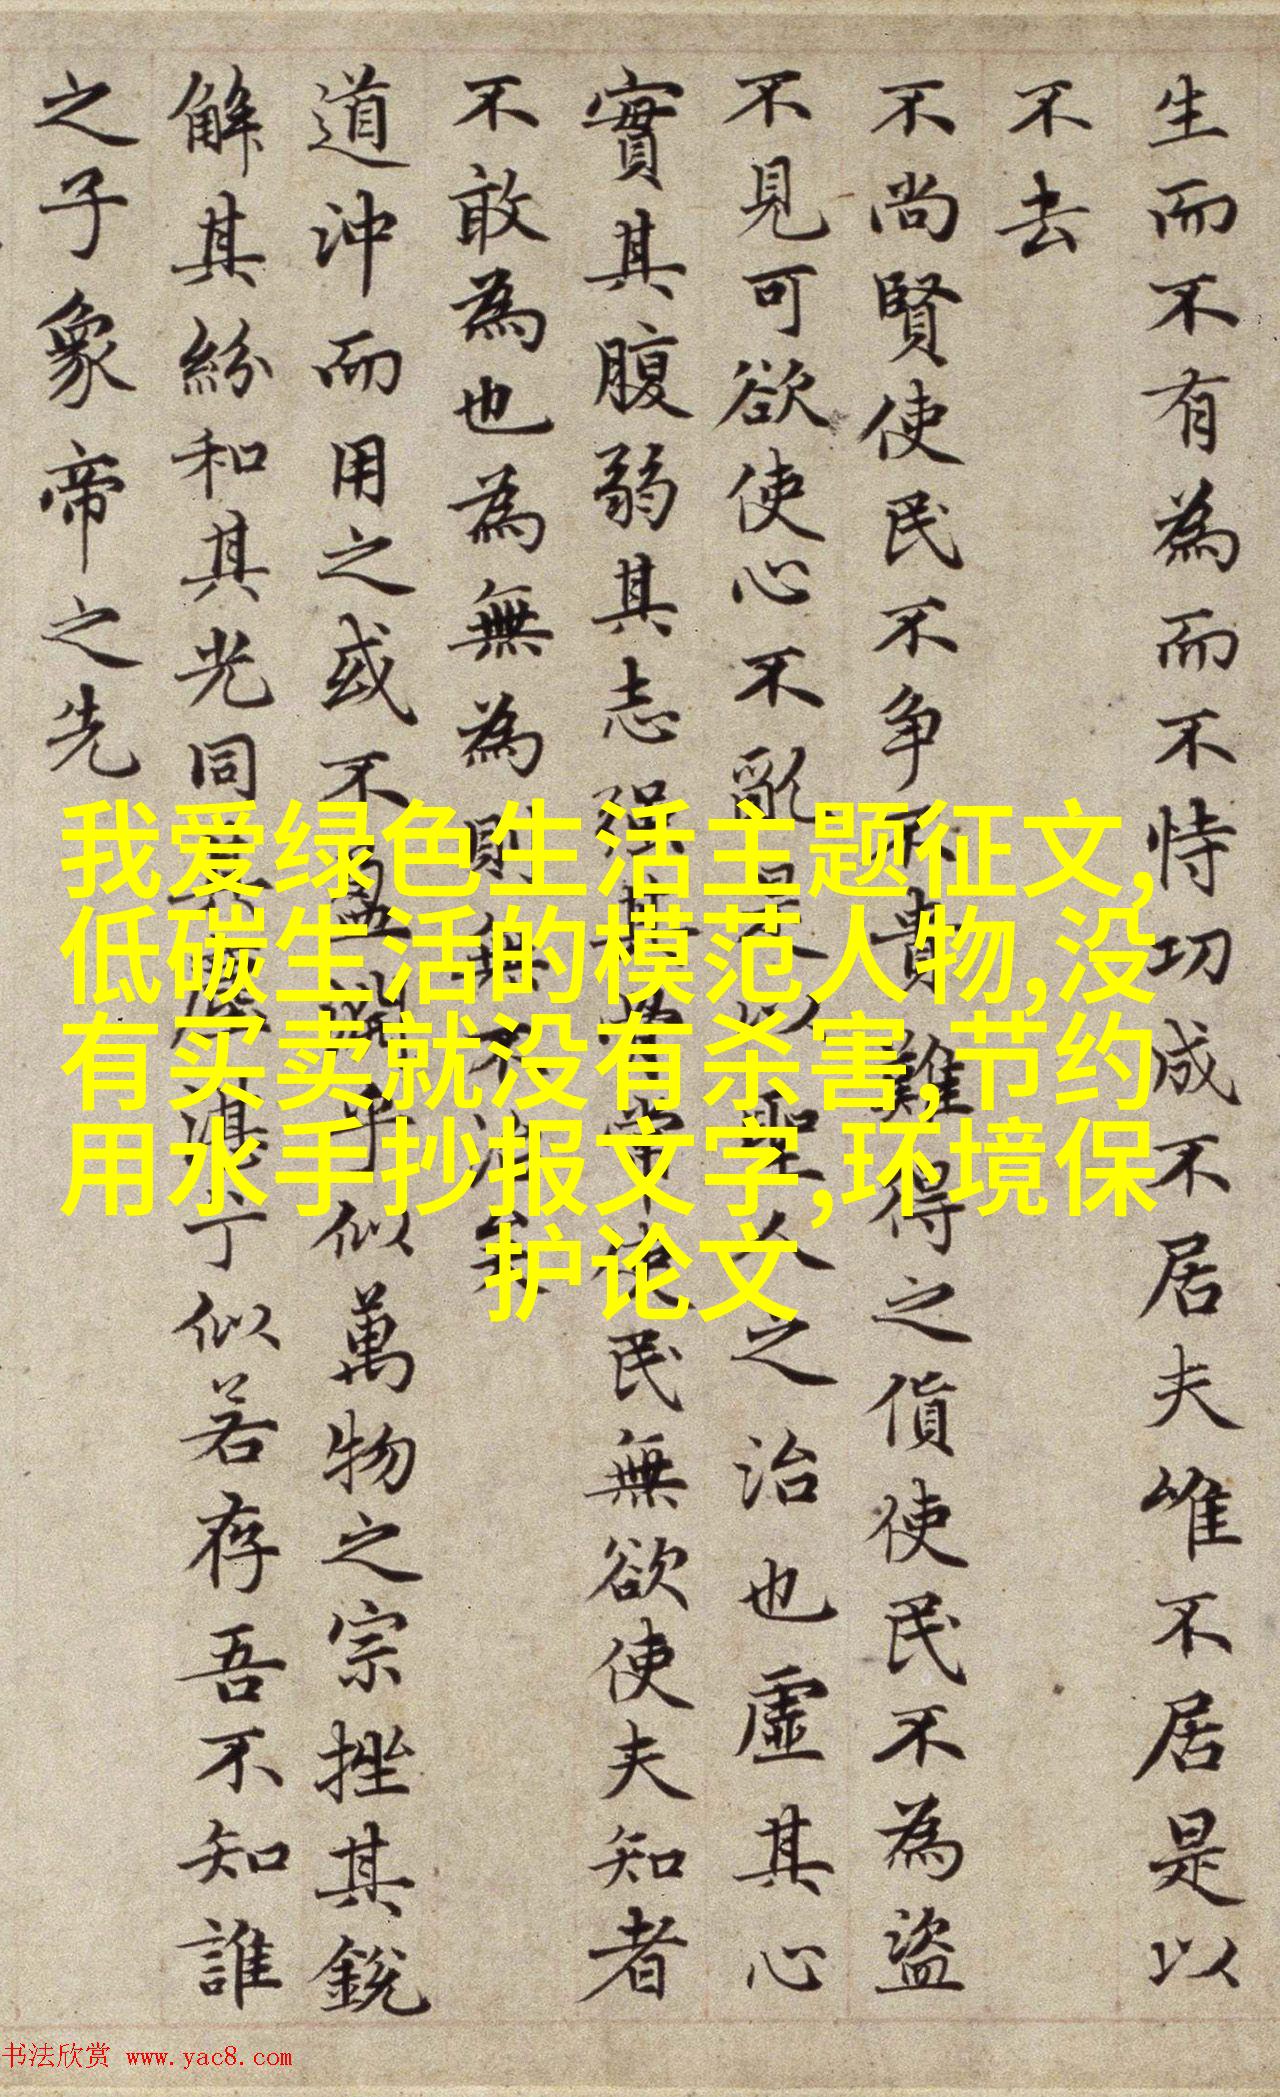 生而不有為而不恃功成不居夫唯不居是以
不去
不尚賢使民不争不貴難得之貨使民不為盜
不見可欲使心不亂是以聖人之治也虛其心
實其腹弱其志强其骨常使民無欲使夫知者
不敢為也為無為則無不治矣
道沖而用之或不盈淵乎似萬物之宗挫其銳
解其紛和其光同其塵湛兮似若存吾不知誰
之子象帝之先
我爱绿色生活主题征文,
低碳生活的模范人物,没
有买卖就没有杀害,节约
用水手抄报文字,环境保
护论文
书法欣赏 www.yac8.com